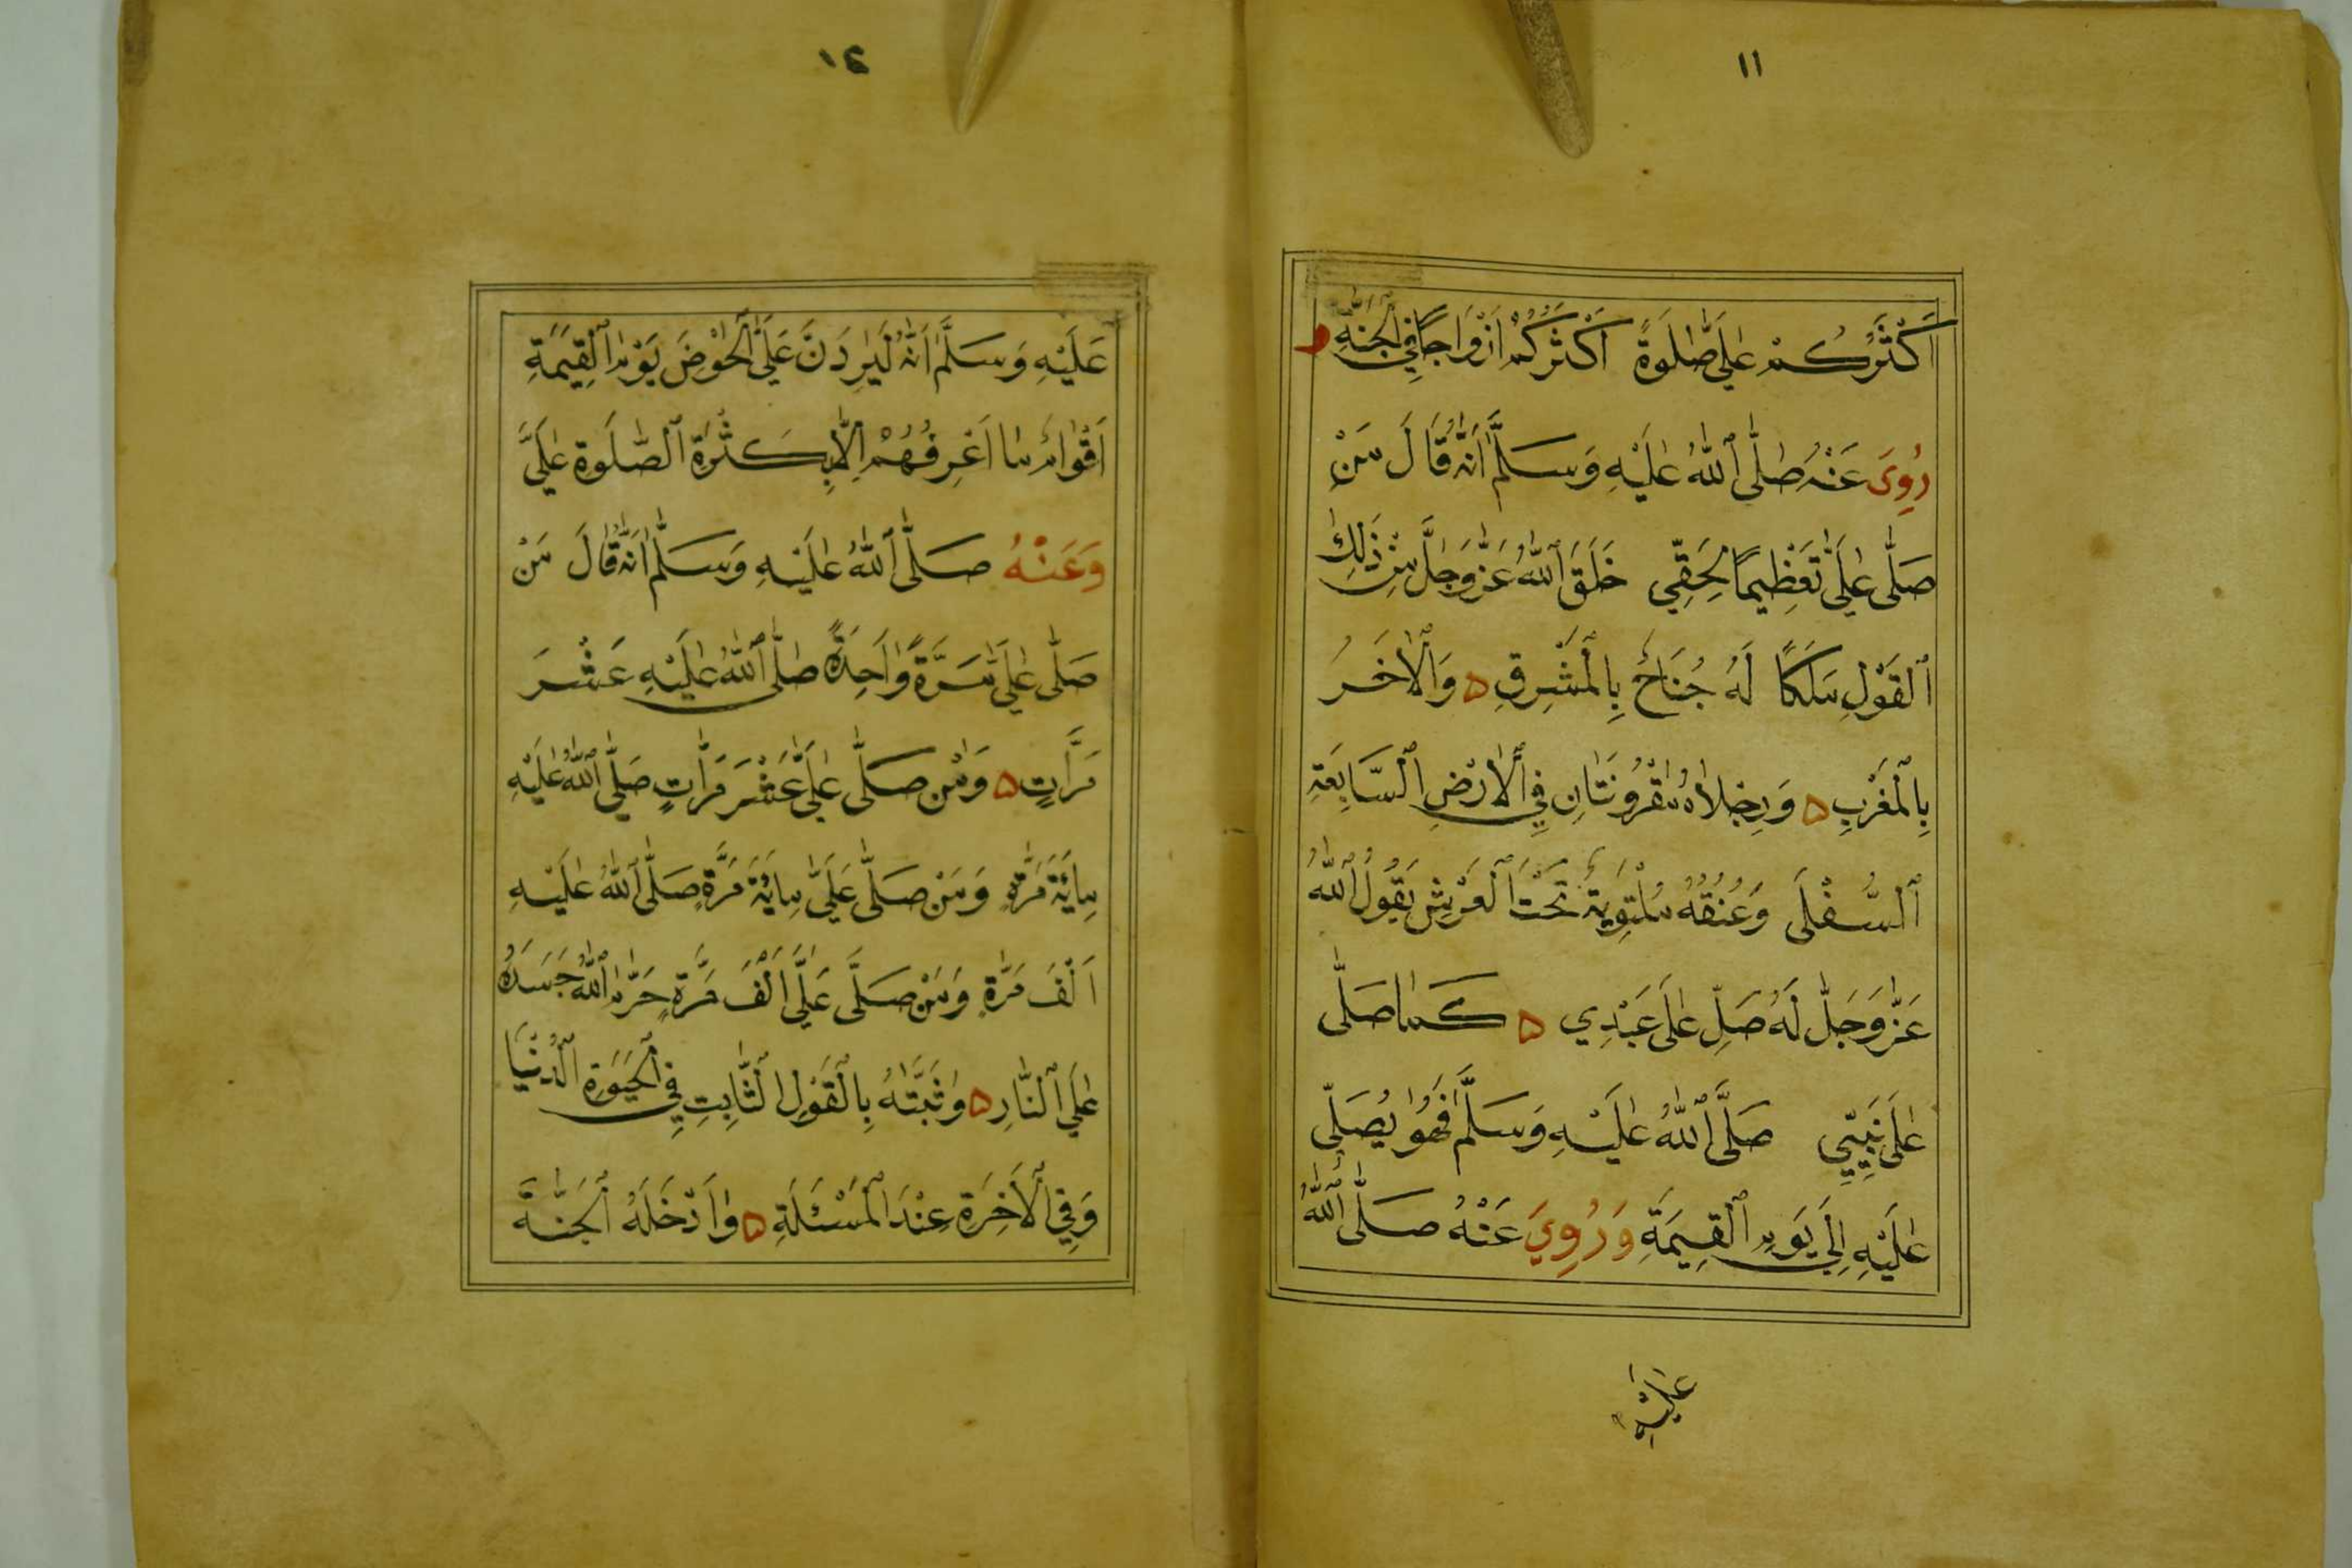 ١١
أَكْثَرُكُمْ عَلَيَّ صَلَوةً أَكْثَرُكُمْ أَزْوَاجًا فِي ٱلْجَنَّةِ وَ
رُوِىَ عَنْهُ صَلَّى ٱللّٰهُ عَلَيْهِ وَسَلَّمَ اَنَّهُ قَالَ مَنْ
صَلَّى عَلَيَّ تَعْظِيمًا لِحَقِّي خَلَقَ ٱللّٰهُ عَزَّ وَجَلَّ مِنْ ذٰلِكَ
ٱلْقَوْلِ مَلَكًا لَهُ جُنَاحٌ بِالْمَشْرِقِ ۵ وَالْاٰخَرُ
بِالْمَغْرِبِ ۵ وَرِجْلَاهُ مَقْرُونَتَانِ فِي ٱلْاَرْضِ ٱلسَّابِعَةِ
ٱلسُّفْلَى وَعُنُقُهُ مُلْتَوِيَةٌ تَحْتَ ٱلْعَرْشِ يَقُولُ ٱللّٰهُ
عَزَّ وَجَلَّ لَهُ صَلِّ عَلَى عَبْدِي ۵ كَمَا صَلَّى
عَلَى نَبِيِّي صَلَّى ٱللّٰهُ عَلَيْهِ وَسَلَّمَ فَهُوَ يُصَلِّى
عَلَيْهِ اِلَى يَوْمِ ٱلْقِيمَةِ وَرُوِيَ عَنْهُ صَلَّى ٱللّٰهُ
عَلَيْهِ
١٢
عَلَيْهِ وَسَلَّمَ اَنَّهُ لَيَرِدَنَّ عَلَيَّ ٱلْحَوْضَ يَوْمَ ٱلْقِيمَةِ
اَقْوَامٌ مَا اَعْرِفُهُمْ اِلَّا بِكَثْرَةِ ٱلصَّلَوةِ عَلَيَّ
وَعَنْهُ صَلَّى ٱللّٰهُ عَلَيْهِ وَسَلَّمَ اَنَّهُ قَالَ مَنْ
صَلَّى عَلَيَّ مَرَّةً وَاحِدَةً صَلَّى ٱللّٰهُ عَلَيْهِ عَشْرَ
مَرَّاتٍ ۵ وَمَنْ صَلَّى عَلَيَّ عَشْرَ مَرَّاتٍ صَلَّى ٱللّٰهُ عَلَيْهِ
مِايَةَ مَرَّةٍ وَمَنْ صَلَّى عَلَيَّ مِايَةَ مَرَّةٍ صَلَّى ٱللّٰهُ عَلَيْهِ
اَلْفَ مَرَّةٍ وَمَنْ صَلَّى عَلَيَّ اَلْفَ مَرَّةٍ حَرَّمَ ٱللّٰهُ جَسَدَهُ
عَلَى ٱلنَّارِ ۵ وَثَبَّتَهُ بِالْقَوْلِ ٱلثَّابِتِ فِي ٱلْحَيَوةِ ٱلدُّنْيَا
وَفِي ٱلْاَخِرَةِ عِنْدَ ٱلْمَسْئَلَةِ ۵ وَاَدْخَلَهُ ٱلْجَنَّةَ